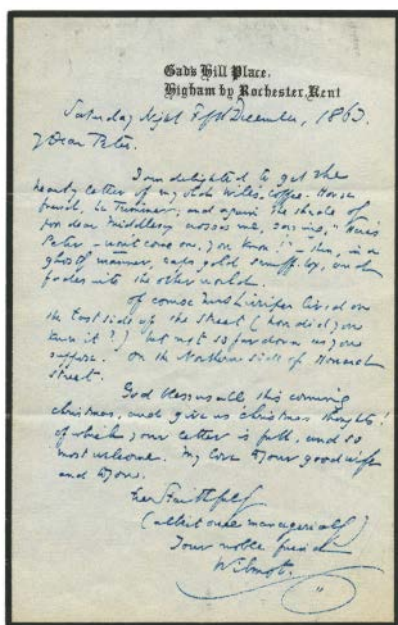 Gad's Hill Place.
Higham by Rochester, Kent
Saturday Night Fifth December, 1863.
My Dear Peter.
I am delighted to get the
hearty letter of my old Wills, Coffee-House
friend, and again the shade of
poor dear Middlesex crosses me, saying, "Here's
Peter - won't come one, you know!" - then, in a
ghostly manner, gold snuff-box, and
fades into the other world.
Of course Mrs Lirriper lived on
the East side of the street (how did you
know it?) but not so far down as you
suppose. On the Northern side of Howard
Street.
God bless us all this coming
Christmas, and give us Christmas thoughts!
of which your letter is full, and so
most welcome. My love to your good wife
and to you.
Ever Faithfully
(albeit once managerially)
Your noble friend
Wilmot.